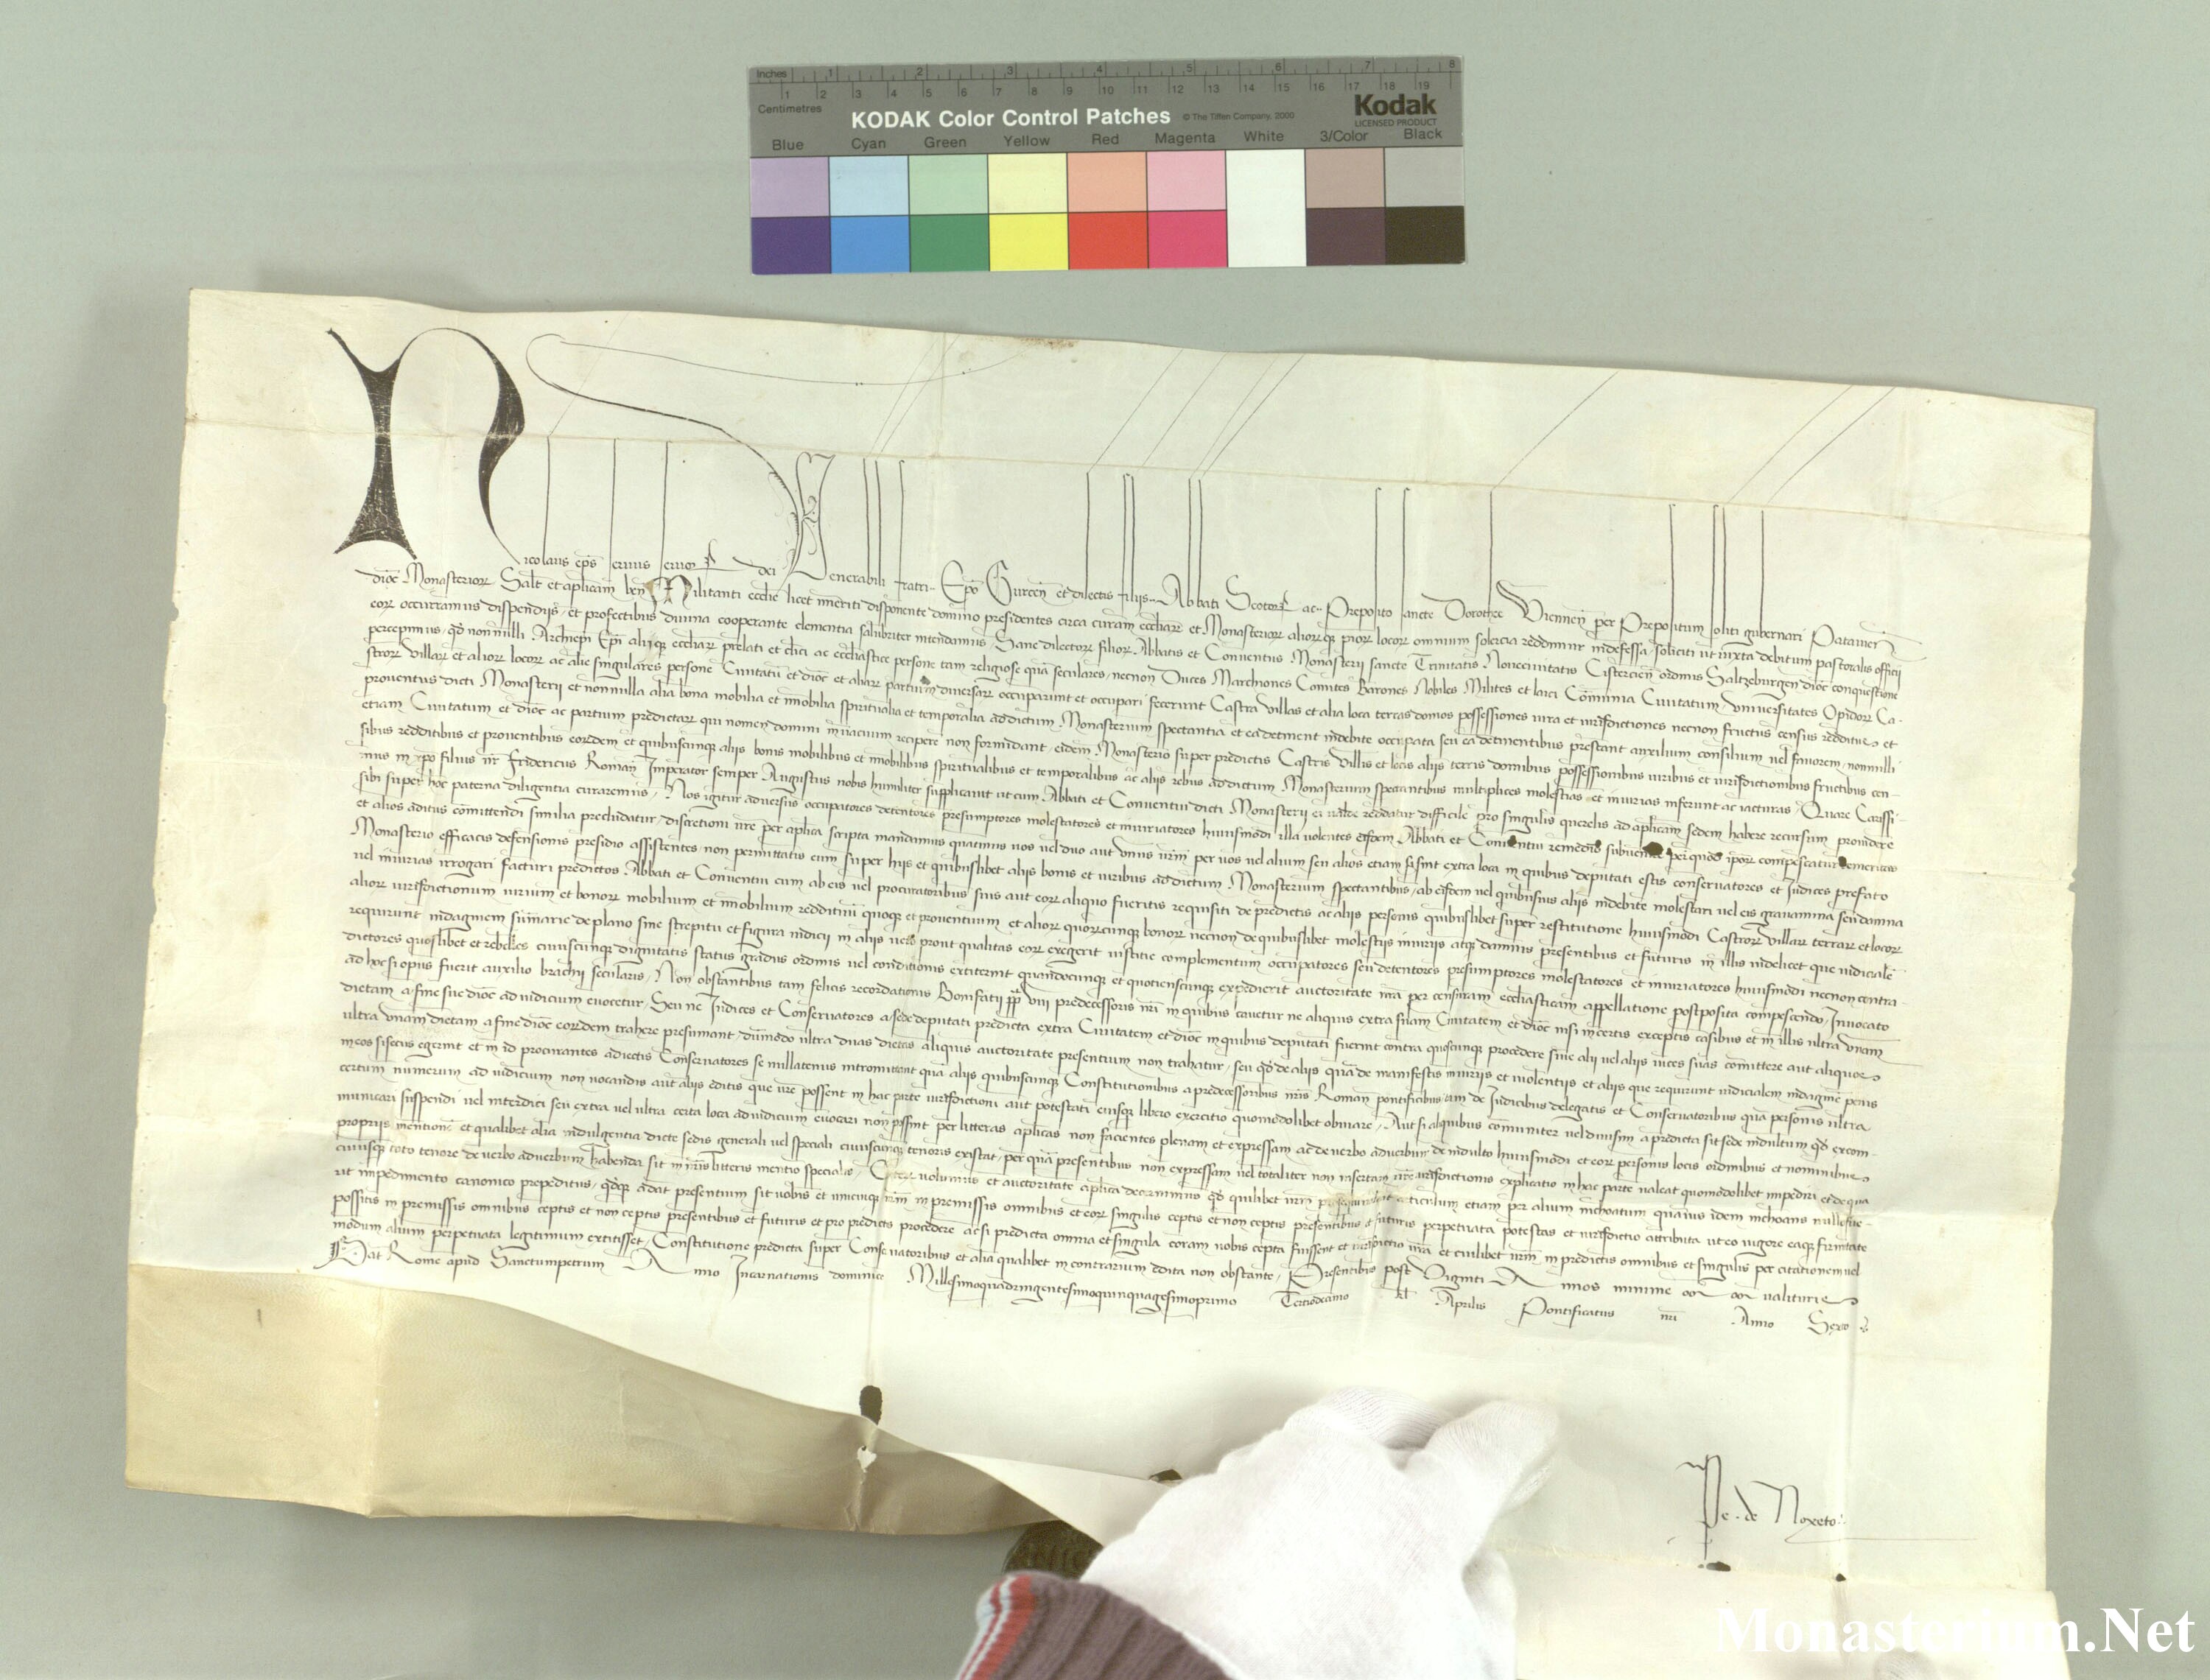 Inches 1 2 3 4 5 6 7 8
1 2 3 4 5 6 7 8 9 10 11 12 13 14 15 16 17 18 19
Centimetres
KODAK Color Control Patches © The Tiffen Company, 2000 Kodak
LICENSED PRODUCT
Blue Cyan Green Yellow Red Magenta White 3/Color Black
Nicolaus ep̄s seruus seruoꝝ dei Venerabili fratri Ep̄o Gurceñ et dilectis filijs Abbati Scotoꝝ ac Preposito sancte Dorothee Vienneñ per Prepositum soliti gubernari Patauieñ
dioc̄ Monasterioꝝ Salt̄ et aplicam ben̄ Militanti ecclie licet īmeriti disponente domino presidentes circa curam eccliaꝝ et Monasterioꝝ aliorumqꝫ pioꝝ locoꝝ omnium solercia reddimur indefessa soliciti ut iuxta debitum pastoralis officij
eoꝝ occurramus dispendijs et profectibus diuina cooperante clementia salubriter intendamus Sane dilectoꝝ filioꝝ Abbatis et Conuentus Monasterii sancte Trinitatis Nouecivitatis Cistercieñ ordinis Saltzeburgeñ dioc̄ conquestione
percepimus qd̄ nonnulli Archiepī Epī aliiqꝫ eccliaꝝ prelati et clici ac ecclesiastice persone tam religiose quā seculares necnon Duces Marchiones Comites Barones Nobiles Milites et laici Cōmunia Ciuitatum vniuersitates Opidoꝝ Ca-
stroꝝ villaꝝ et alioꝝ locoꝝ ac alie singulares persone Ciuitatū et dioc̄ et aliaꝝ partium diuersaꝝ occuparunt et occupari fecerunt Castra villas et alia loca terras domos possessiones iura et iurisdictiones necnon fructus census redditus et
prouentus dicti Monasterii et nonnulla alia bona mobilia et īmobilia spiritualia et temporalia ad dictum Monasterium spectantia et ea detinent indebite occupata seu ea detinentibus prestant auxilium consilium uel fauorem nonnulli
etiam Ciuitatum et dioc̄ ac partium predictaꝝ qui nomen domini in uacuum recipere non formidant eidem Monasterio super predictis Castris villis et locis aliis terris domibus possessionibus iuribus et iurisdictionibus fructibus cen-
sibus redditibus et prouentibus eorūdem et quibuscunqꝫ aliis bonis mobilibus et īmobilibus spiritualibus et temporalibus ac aliis rebus ad dictum Monasterium spectantibus multiplices molestias et iniurias inferunt ac iacturas Quare Carissi-
mus in xp̄o filius nr̄ Fridericus Romañ Imperator semper Augustus nobis humiliter supplicauit ut cum Abbati et Conuentui dicti Monasterii reddatur difficile pro singulis querelis ad aplicam sedem habere recursum prouidere
sibi super hoc paterna diligentia curaremus Nos igitur aduersus occupatores detentores presumptores molestatores et iniuriatores huiusmodi illa uolentes eisdem Abbati et Conuentui remedio subuenire per quod ipoꝝ compescatur temeritas
et aliis aditus cōmittendi similia precludatur discretioni ur̄e per aplica scripta mandamus quatinus uos uel duo aut vnus ur̄m per uos uel alium seu alios etiam si sint extra loca in quibus deputati estis conseruatores et Iudices prefato
Monasterio efficacis defensionis presidio assistentes non permittatis eum super hijs et quibuslibet aliis bonis et iuribus ad dictum Monasterium spectantibus ab eisdem uel quibusuis aliis indebite molestari uel eis grauamina seu damna
uel iniurias irrogari facturi predictos Abbati et Conuentui cum ab eis uel procuratoribus suis aut eoꝝ aliquo fueritis requisiti de predictis ac aliis personis quibuslibet super restitutione huiusmodi Castroꝝ villaꝝ terraꝝ et locoꝝ
alioꝝ iurisdictionum iurium et bonoꝝ mobilium et īmobilium reddituū quoqꝫ et prouentuum et alioꝝ quoꝝcunqꝫ bonoꝝ necnon de quibuslibet molestijs iniurijs atqꝫ damnis presentibus et futuris in illis uidelicet que iudicialē
requirunt indaginem sūmarie de plano sine strepitu et figura iudicii in aliis uero prout qualitas eoꝝ exegerit iustitie complementum occupatores seu detentores presumptores molestatores et iniuriatores huiusmodi necnon contra-
dictores quoslibet et rebelles cuiuscunqꝫ dignitatis status gradus ordinis uel conditionis extiterint quandocunqꝫ et quotienscunqꝫ expedierit auctoritate nr̄a per censuram ecclesiasticam appellatione postposita compescendo Inuocato
ad hoc si opus fuerit auxilio brachij secularis Non obstantibus tam felicis recordationis Bonifatii pp̄ viij predecessoris nr̄i in quibus cauetur ne aliquis extra suam Ciuitatem et dioc̄ nisi in certis exceptis casibus et in illis ultra vnam
dietam a fine sue dioc̄ ad iudicium euocetur Seu ne Iudices et Conseruatores a sede deputati predicta extra Ciuitatem et dioc̄ in quibus deputati fuerint contra quoscunqꝫ procedere siue alii uel aliis uices suas cōmittere aut aliquos
ultra vnam dietam a fine dioc̄ eorūdem trahere presumant dūmodo ultra duas dietas aliquis auctoritate presentium non trahatur seu qd̄ de aliis quā de manifestis iniuriis et uiolentijs et aliis que requirunt iudicialem indaginē penis
in eos si secus egerint et in id procurantes adiectis Conseruatores se nullatenus intromittant quā aliis quibuscunqꝫ Constitutionibus a predecessoribus nr̄is Romañ pontificibus tam de Iudicibus delegatis et Conseruatoribus quā personis ultra
certum numerum ad iudicium non uocandis aut aliis editis que ur̄e possent in hac parte iurisdictioni aut potestati eiusqꝫ libero exercitio quomodolibet obuiare Aut si aliquibus cōmuniter uel diuisim a predicta sit sede indultum qd̄ excom-
municari suspendi uel interdici seu extra uel ultra certa loca ad iudicium euocari non possint per litteras aplicas non facientes plenam et expressam ac de uerbo ad uerbum de indulto huiusmodi et eoꝝ personis locis ordinibus et nominibus
proprijs mentionē et qualibet alia indulgentia dicte sedis generali uel speciali cuiuscunqꝫ tenoris existat per quā presentibus non expressam uel totaliter non insertam ur̄e iurisdictionis explicatio in hac parte ualeat quomodolibet impediri et de qua
cuiusqꝫ toto tenore de uerbo ad uerbum habenda sit in nr̄is litteris mentio specialis Ceterum uolumus et auctoritate aplica decernimus qd̄ quilibet ur̄m prosequi ualeat articulum etiam per alium inchoatum quāuis idem inchoans nullo fue-
rit impedimento canonico prepeditus qd̄qꝫ a dat̄ presentium sit uobis et unicuiqꝫ ur̄m in premissis omnibus et eoꝝ singulis ceptis et non ceptis presentibus et futuris perpetuata potestas et iurisdictio attributa ut eo uigore eaqꝫ firmitate
possitis in premissis omnibus ceptis et non ceptis presentibus et futuris et pro predictis procedere ac si predicta omnia et singula coram uobis cepta fuissent et iurisdictio ur̄a et cuilibet ur̄m in predictis omnibus et singulis per citationem uel
modum alium perpetuata legitimum extitisset Constitutione predicta super Conseruatoribus et alia qualibet in contrarium edita non obstante Presentibus post Viginti Annos minime ualituris
Dat̄ Rome apud Sanctumpetrum Anno Incarnationis dominice Millesimoquadringentesimoquinquagesimoprimo Tertiodecimo kl̄ Aprilis Pontificatus nr̄i Anno Sexto
Pe. de Noxeto
Monasterium.Net